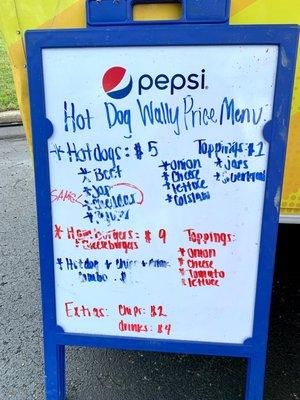 pepsi
Hot Dog Wally Price Menu:
* Hotdogs: $5
Toppings: $1
* onion
* Cheese
* lettuce
* Colslaw
* Jars
* Hamburgers $9
* Cheeseburgers
Toppings:
* onion
* cheese
* Tomato
* lettuce
* Hotdog + Chips + Drink
Combo $
Extras: Chips: $2
drinks: $4